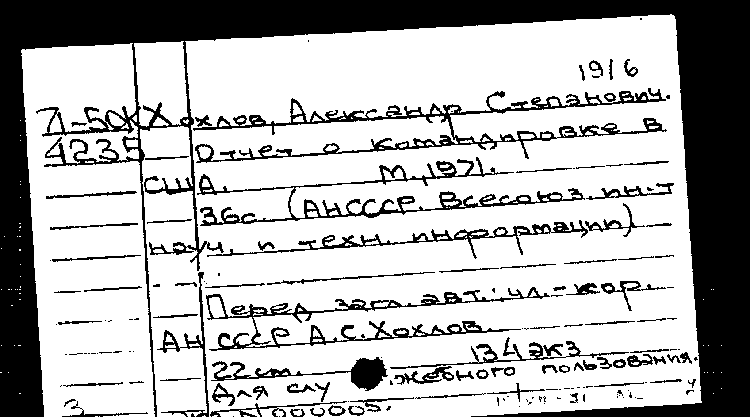 19/6
Д-50К Хохлов, Александр Степанович.
4235 Отчет о командировке в
США. М., 1971.
36с. (АНСССР. Всесоюз. ин-т
науч. и техн. информации)
Перед загл. авт.: чл.-кор.
АН СССР А.С.Хохлов.
22 см. 134 экз
Для слу жебного пользования.
3 экз N000005.